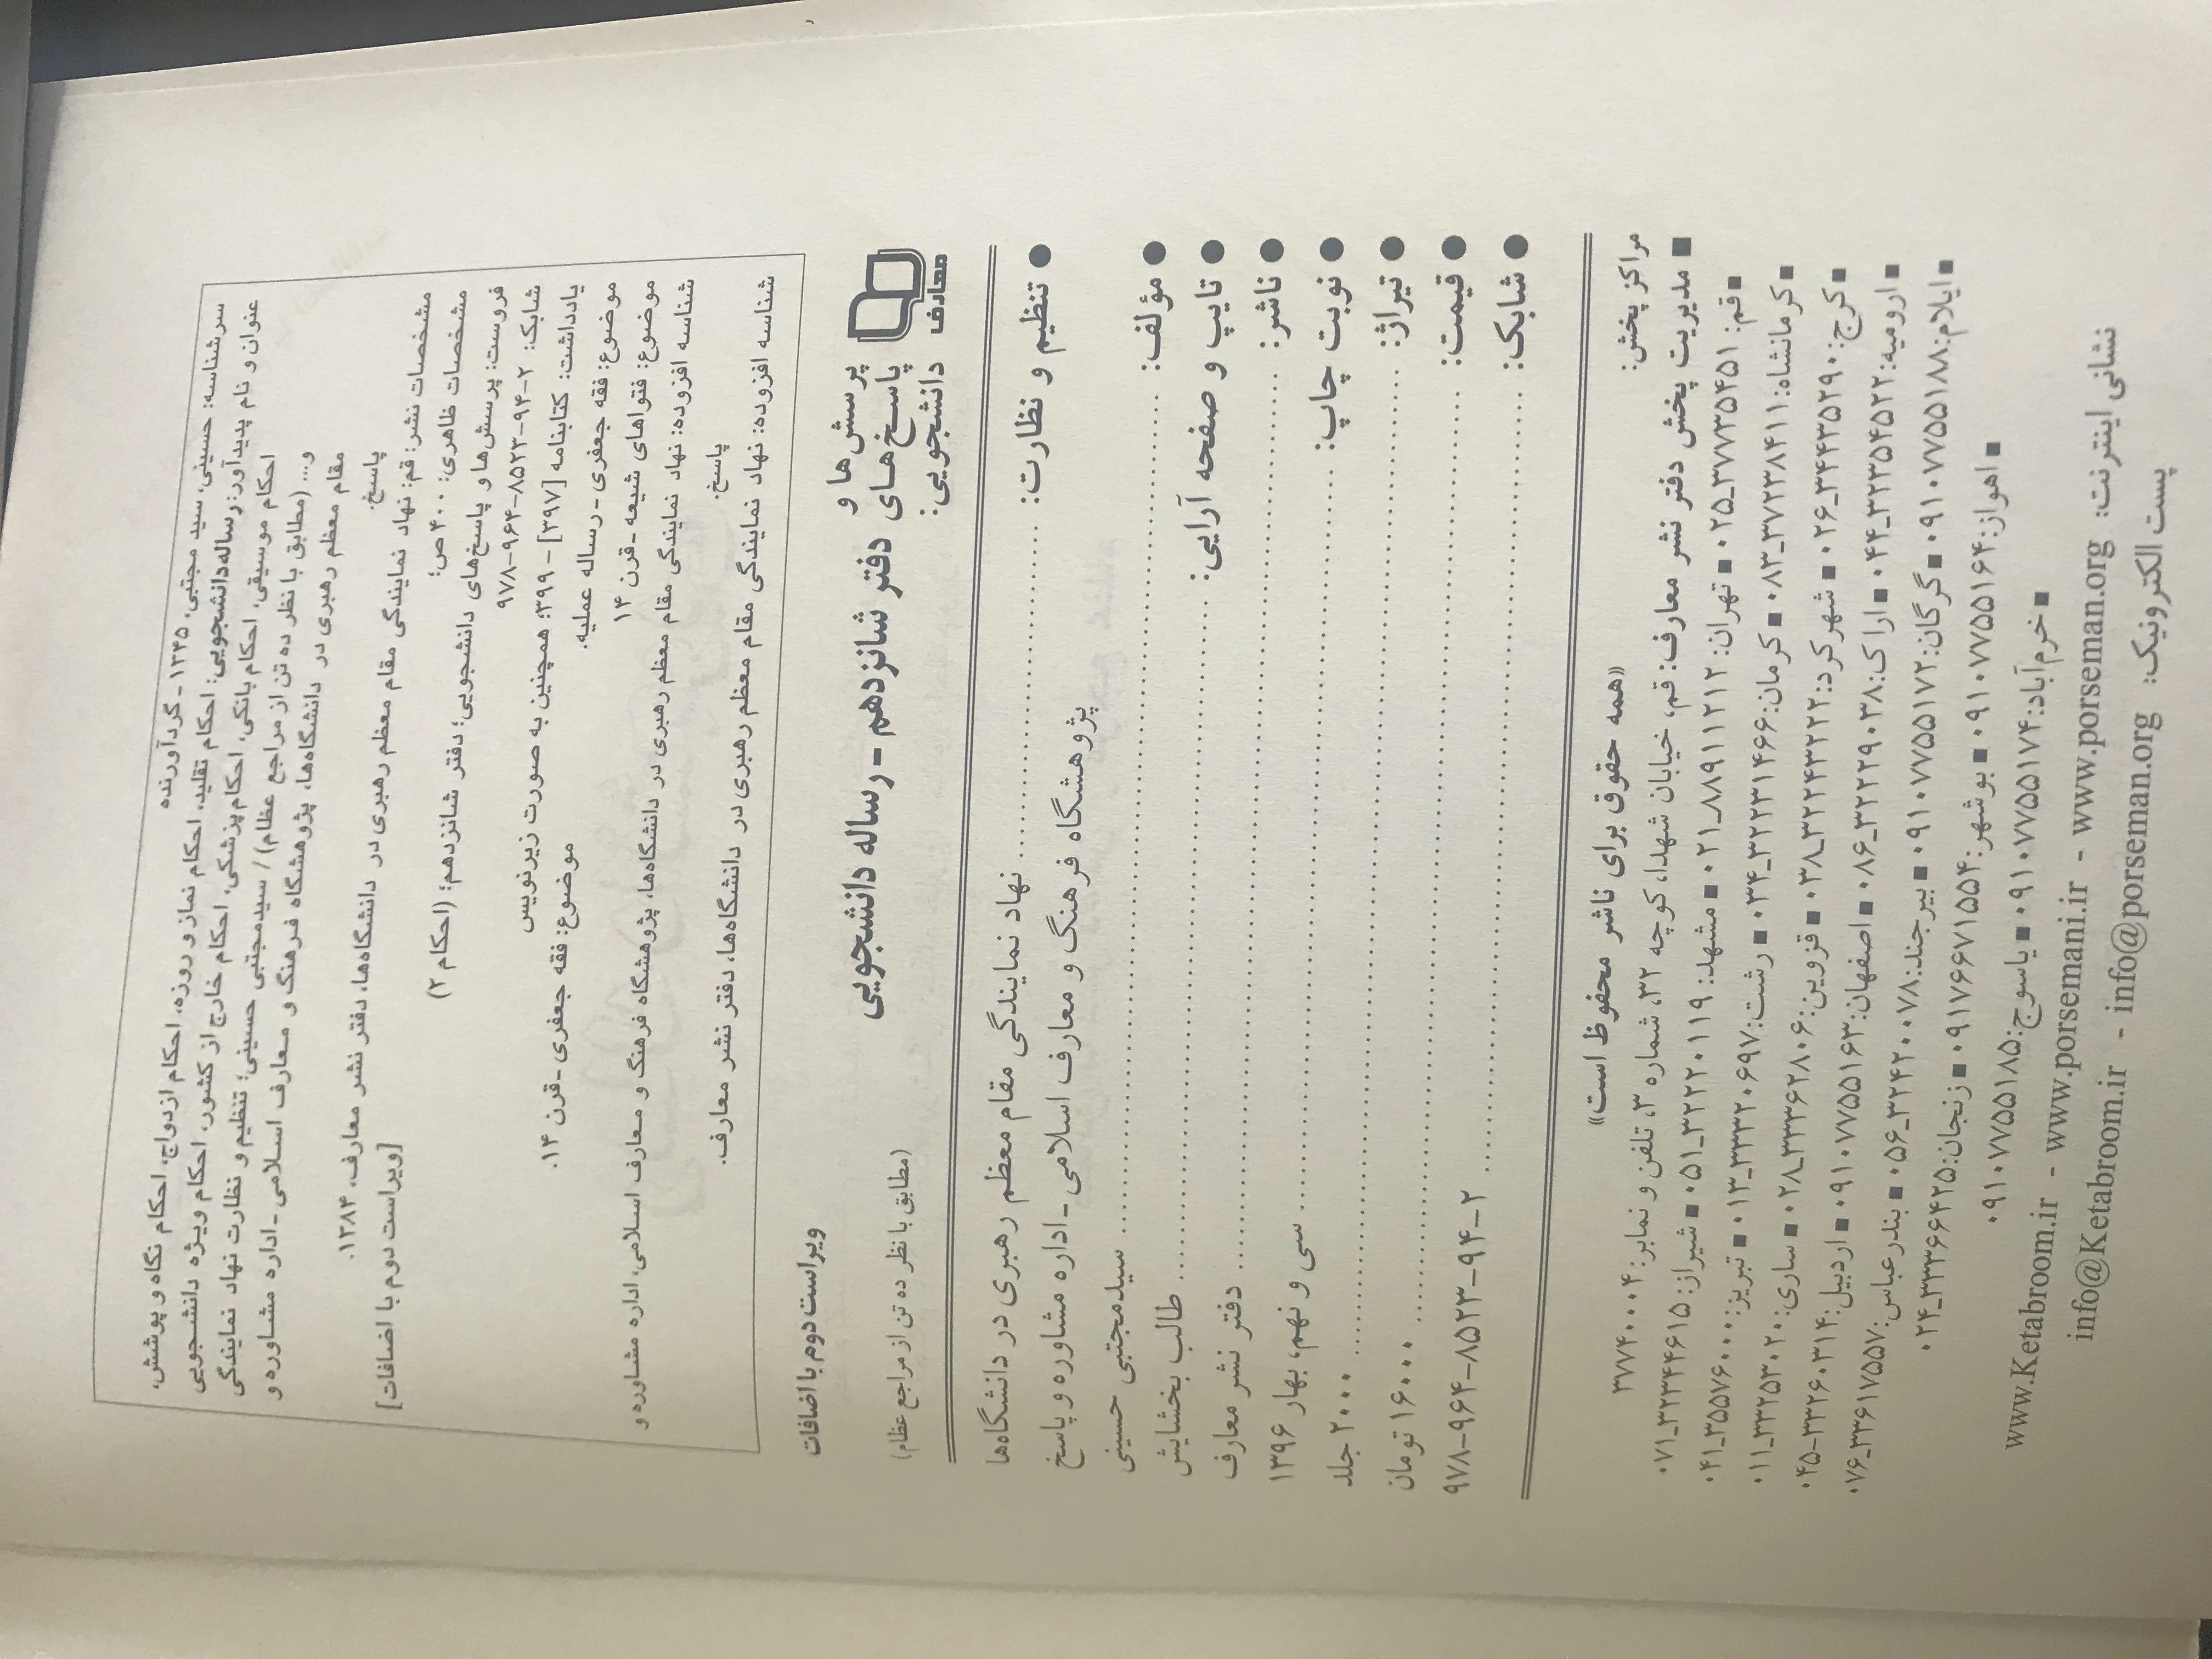 سرشناسه: حسینی، سید مجتبی، ۱۳۴۵ ـ گردآورنده
عنوان و نام پدیدآور: رساله دانشجویی: احکام تقلید، احکام نماز و روزه، احکام ازدواج، احکام نگاه و پوشش،
احکام موسیقی، احکام بانکی، احکام پزشکی، احکام خارج از کشور، احکام ویژه دانشجویی
و... (مطابق با نظر ده تن از مراجع عظام) / سیدمجتبی حسینی؛ تنظیم و نظارت نهاد نمایندگی
مقام معظم رهبری در دانشگاه‌ها، پژوهشگاه فرهنگ و معارف اسلامی ـ اداره مشاوره و
پاسخ.
مشخصات نشر: قم: نهاد نمایندگی مقام معظم رهبری در دانشگاه‌ها، دفتر نشر معارف، ۱۳۸۴.
مشخصات ظاهری: ۴۰۰ ص؛ [ویراست دوم با اضافات]
فروست: پرسش‌ها و پاسخ‌های دانشجویی؛ دفتر شانزدهم؛ (احکام ۲)
شابک: ۲-۹۴-۸۵۲۳-۹۶۴-۹۷۸
یادداشت: کتابنامه [۳۹۷] - ۳۹۹؛ همچنین به صورت زیرنویس
موضوع: فقه جعفری - رساله عملیه. موضوع: فقه جعفری - قرن ۱۴.
موضوع: فتواهای شیعه - قرن ۱۴
شناسه افزوده: نهاد نمایندگی مقام معظم رهبری در دانشگاه‌ها، پژوهشگاه فرهنگ و معارف اسلامی، اداره مشاوره و
پاسخ.
شناسه افزوده: نهاد نمایندگی مقام معظم رهبری در دانشگاه‌ها، دفتر نشر معارف.
ویراست دوم با اضافات
معارف
پرسش‌ها و
پاسخ‌های
دانشجویی:
دفتر شانزدهم - رساله دانشجویی
(مطابق با نظر ده تن از مراجع عظام)
● تنظیم و نظارت: ........ نهاد نمایندگی مقام معظم رهبری در دانشگاه‌ها
پژوهشگاه فرهنگ و معارف اسلامی - اداره مشاوره و پاسخ
● مؤلف: ........ سیدمجتبی حسینی
● تایپ و صفحه آرایی: ........ طالب بخشایش
● ناشر: ........ دفتر نشر معارف
● نوبت چاپ: ........ سی و نهم، بهار ۱۳۹۶
● تیراژ: ........ ۲۰۰۰ جلد
● قیمت: ........ ۱۶۰۰۰ تومان
● شابک: ........ ۲-۹۴-۸۵۲۳-۹۶۴-۹۷۸
«همه حقوق برای ناشر محفوظ است»
مراکز پخش:
■ مدیریت پخش دفتر نشر معارف: قم، خیابان شهدا، کوچه ۳۲، شماره ۳، تلفن و نمابر: ۳۷۷۴۰۰۰۴
■ قم: ۳۷۷۳۵۴۵۱_۰۲۵ ■ تهران: ۸۸۹۱۱۲۱۲_۰۲۱ ■ مشهد: ۳۲۲۲۰۱۱۹_۰۵۱ ■ شیراز: ۳۲۳۴۴۶۱۵_۰۷۱
■ کرمانشاه: ۳۷۲۳۸۴۱۱_۰۸۳ ■ کرمان: ۳۲۲۳۱۴۶۶_۰۳۴ ■ رشت: ۳۳۳۲۰۶۹۷_۰۱۳ ■ تبریز: ۳۵۵۷۶۰۰۰_۰۴۱
■ کرج: ۳۴۴۳۵۲۹۰_۰۲۶ ■ شهرکرد: ۳۲۲۴۳۲۲۲_۰۳۸ ■ قزوین: ۳۳۳۶۲۸۰۶_۰۲۸ ■ ساری: ۳۳۲۵۳۰۲۰_۰۱۱
■ ارومیه: ۳۲۳۵۴۵۲۲_۰۴۴ ■ اراک: ۳۲۲۲۹۰۳۸_۰۸۶ ■ اصفهان: ۰۹۱۰۷۷۵۵۱۶۳ ■ اردبیل: ۳۳۲۶۰۳۱۴-۰۴۵
■ ایلام: ۰۹۱۰۷۷۵۵۱۸۸ ■ گرگان: ۰۹۱۰۷۷۵۵۱۷۲ ■ بیرجند: ۳۲۴۲۰۰۷۸_۰۵۶ ■ بندرعباس: ۳۳۶۱۷۵۵۷_۰۷۶
■ اهواز: ۰۹۱۰۷۷۵۵۱۶۴ ■ بوشهر: ۰۹۱۷۶۶۷۱۵۵۴ ■ زنجان: ۳۳۳۶۶۴۲۵_۰۲۴
■ خرم‌آباد: ۰۹۱۰۷۷۵۵۱۷۴ ■ یاسوج: ۰۹۱۰۷۷۵۵۱۸۵
نشانی اینترنت: www.Ketabroom.ir - www.porsemani.ir - www.porseman.org
پست الکترونیک: info@Ketabroom.ir - info@porseman.org